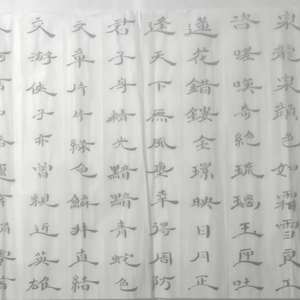 泉龍泉顏色如霜雪良工
咨嗟嘆奇絕琉璃玉匣吐
蓮花錯鏤金環映日月正
逢天下無風塵幸得周防
君子身精光黯黯青蛇色
文章片片綠龜鱗非直結
交游俠子亦曾親近英雄